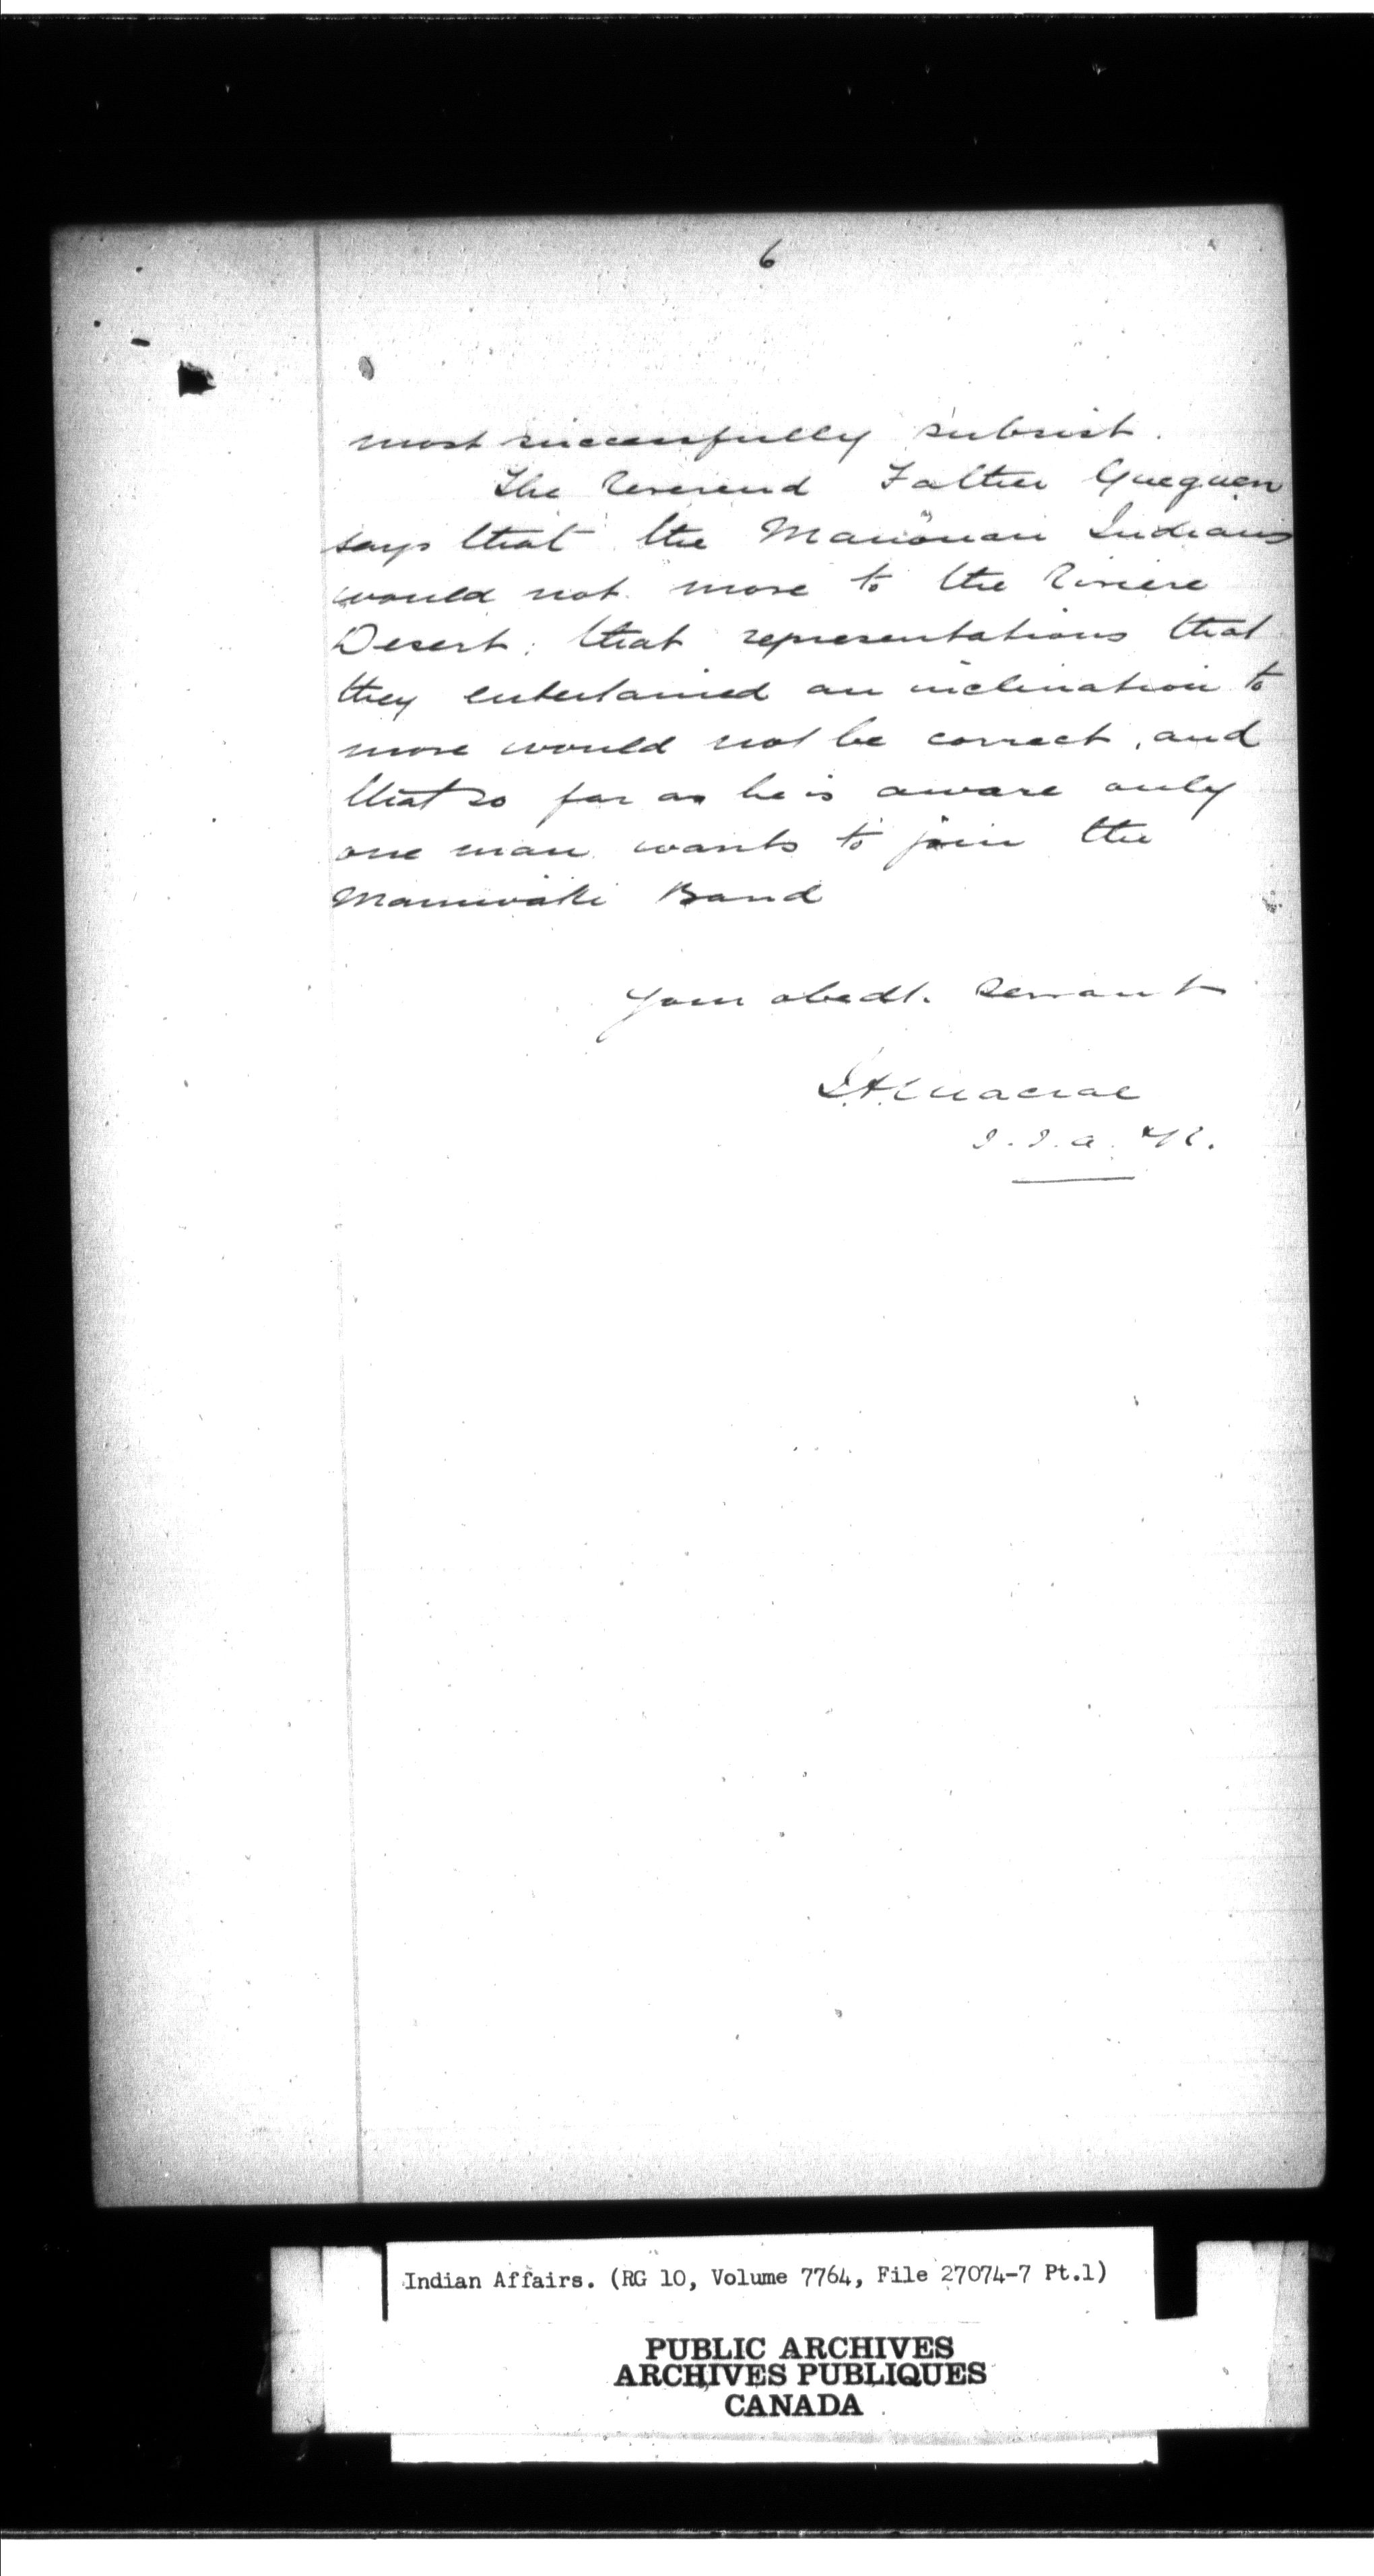 6
most successfully subsist.
The Reverend Father Gueguen
says that the Manouan Indians
would not move to the Riviere
Desert; that representations that
they entertained an inclination to
move would not be correct, and
that so far as he is aware only
one man wants to join the
Maniwaki Band
Your obedt. Servant
J.A. Macrae
I.I.A. &c.
Indian Affairs. (RG 10, Volume 7764, File 27074-7 Pt.1)
PUBLIC ARCHIVES
ARCHIVES PUBLIQUES
CANADA